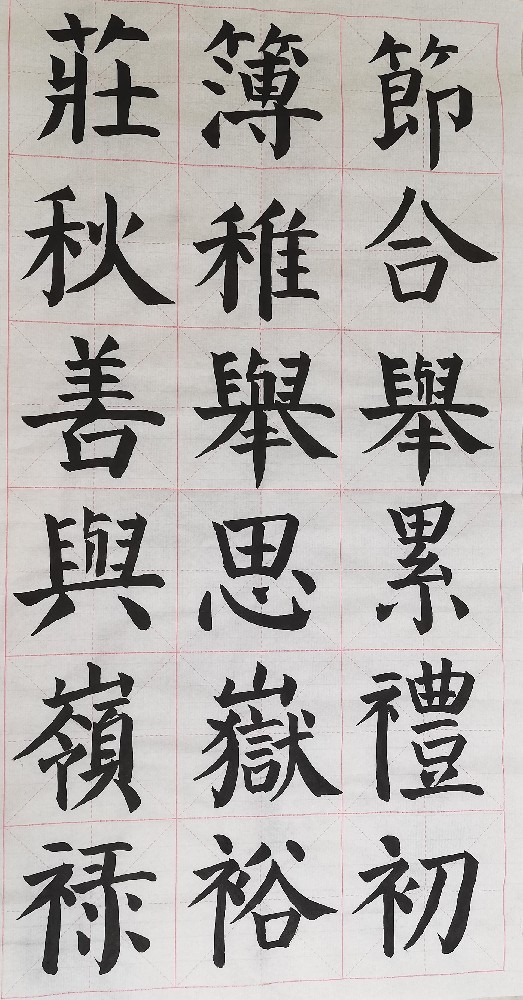 節合舉累禮初
簿稚舉思嶽裕
莊秋善與嶺祿